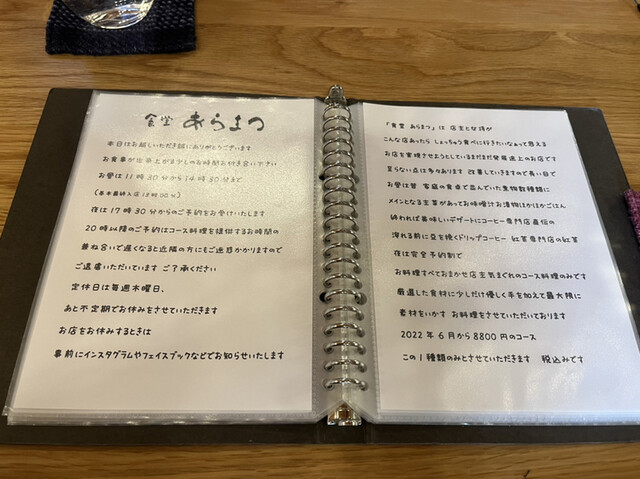 食堂 あらまつ
本日はお越しいただき誠にありがとうございます
お食事が出来上がる少しのお時間お付き合い下さい
お昼は11時30分から14時30分まで
夜は17時30分からのご予約をお受けいたします
20時以降のご予約はコース料理を提供するお時間の
兼ね合いで遅くなると近隣の方にもご迷惑かかりますので
ご遠慮いただいています ご了承ください
定休日は毎週木曜日、
あと不定期でお休みをさせていただきます
お店をお休みするときは
事前にインスタグラムやフェイスブックなどでお知らせいたします
「食堂 あらまつ」は 店主と女将が
こんな店あったら しょっちゅう食べに行きたいなぁって思える
お店を実現させようとしているまだまだ発展途上のお店です
至らない点は多々あります 改善していきますので長い目で
お昼は昔 家庭の食卓で並んでいた煮物数種類に
メインとなる主菜があってお味噌汁お漬物にほかほかごはん
終われば美味しいデザートにコーヒー専門店直伝の
淹れる前に豆を挽くドリップコーヒー 紅茶専門店の紅茶
夜は完全予約制で
お料理すべておまかせ店主気まぐれのコース料理のみです
厳選した食材に少しだけ優しく手を加えて最大限に
素材をいかす お料理をさせていただいております
2022年6月から8800円のコース
この1種類のみとさせていただきます 税込みです